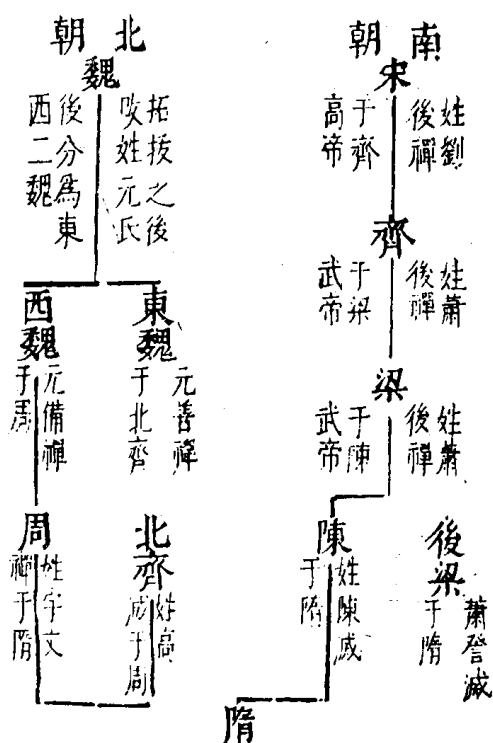 南朝
宋
姓劉
後禪
于齊
高帝
齊
姓蕭
後禪
于梁
武帝
梁
姓蕭
後禪
于陳
武帝
後梁
蕭詧滅
于隋
陳
姓陳滅
于隋
北朝
魏
拓拔之後
改姓元氏
後分為東
西二魏
東魏
元善禪
于北齊
西魏
元備禪
于周
北齊
姓高
滅于周
周
姓宇文
禪于隋
隋